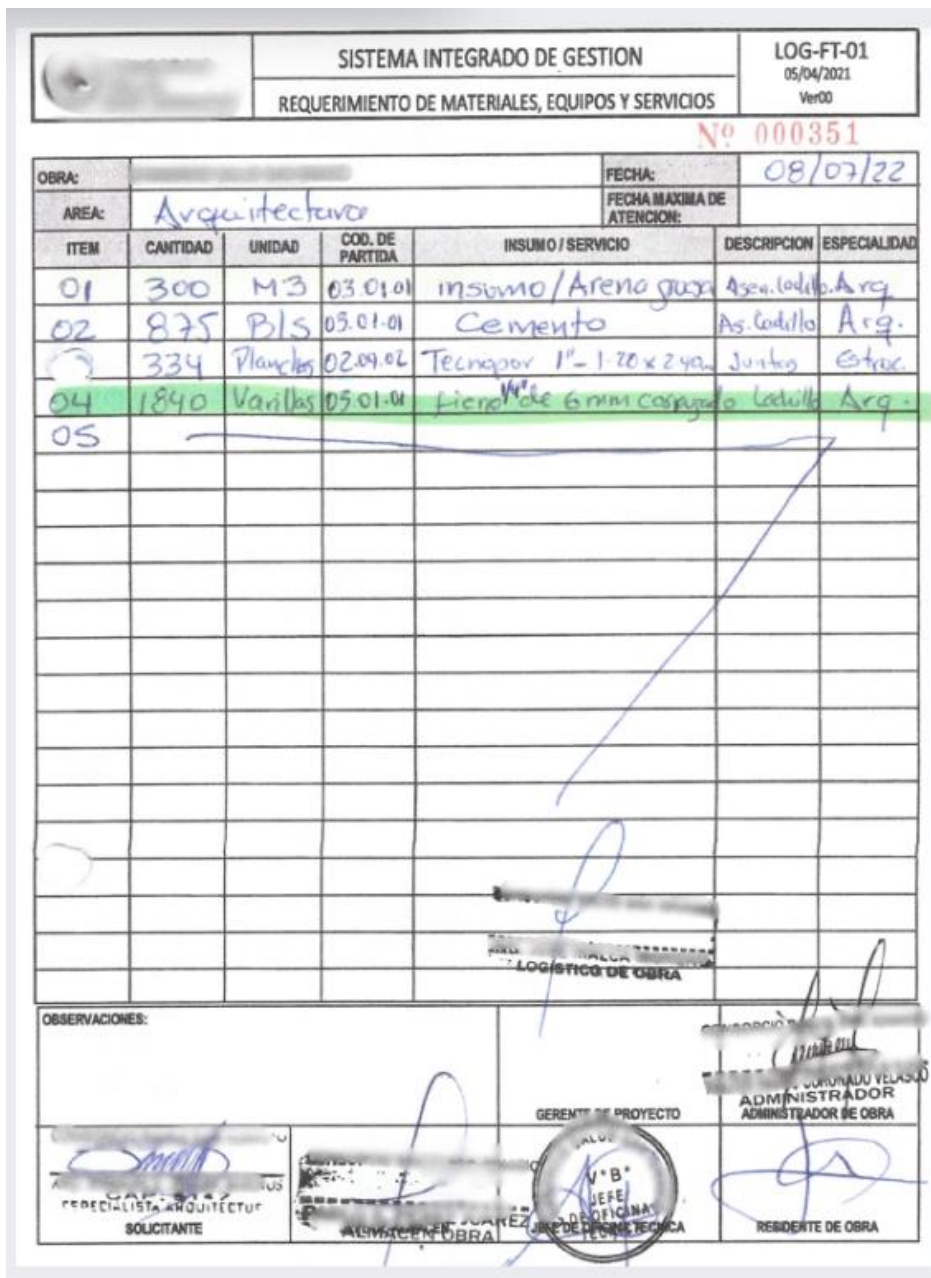 SISTEMA INTEGRADO DE GESTION
REQUERIMIENTO DE MATERIALES, EQUIPOS Y SERVICIOS
LOG-FT-01
05/04/2021
Ver00
Nº 000351
OBRA:
FECHA: 08/07/22
AREA: Arquitectura
FECHA MAXIMA DE ATENCION:
ITEM CANTIDAD UNIDAD COD. DE PARTIDA INSUMO / SERVICIO DESCRIPCION ESPECIALIDAD
01 300 M3 03.01.01 insumo/Arena Arq
02 875 Bls 05.01.01 Cemento As. Ladillo Arq.
334 Planchas 02.09.02 Tecnopor 1" - 1.20 x 2.40m Juntas Estruc.
04 1840 Varillas 05.01.01 fierro 1/4" de 6mm Ladrillo Arq.
05
LOGÍSTICO DE OBRA
OBSERVACIONES:
GERENTE DE PROYECTO
CORONADO VELASCO
ADMINISTRADOR
ADMINISTRADOR DE OBRA
ESPECIALISTA ARQUITECTUR
SOLICITANTE
JUAREZ
ALMACEN OBRA
V°B°
JEFE
DE OFICINA
JEFE DE OFICINA TECNICA
RESIDENTE DE OBRA